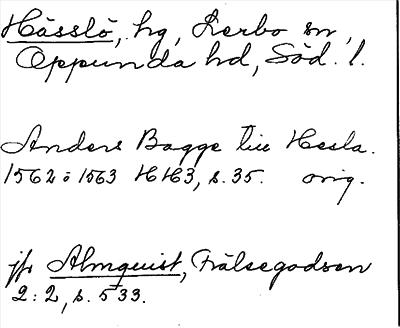 Hässlö, hg, Lerbo sn,
Oppunda hd, Söd. l.
Anders Bagge till Hesla.
1562 o 1563 HH3, s. 35. orig.
jfr Almquist, Frälsegodsen
2:2, s. 533.